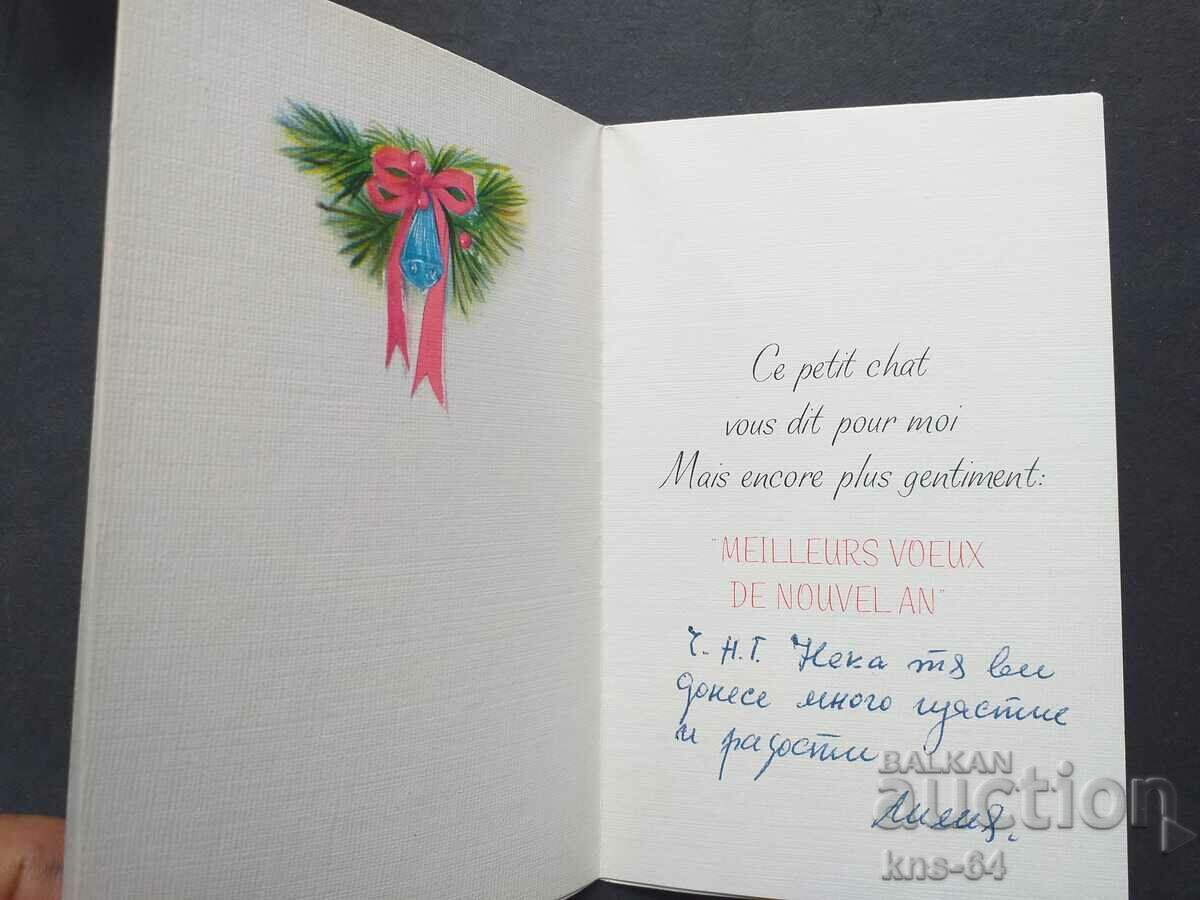 Ce petit chat
vous dit pour moi
Mais encore plus gentiment:
"MEILLEURS VOEUX
DE NOUVEL AN"
Ч.Н.Г. Нека тя ви
донесе много щастие
и радости
Лилия.
BALKAN
auction
kns-64